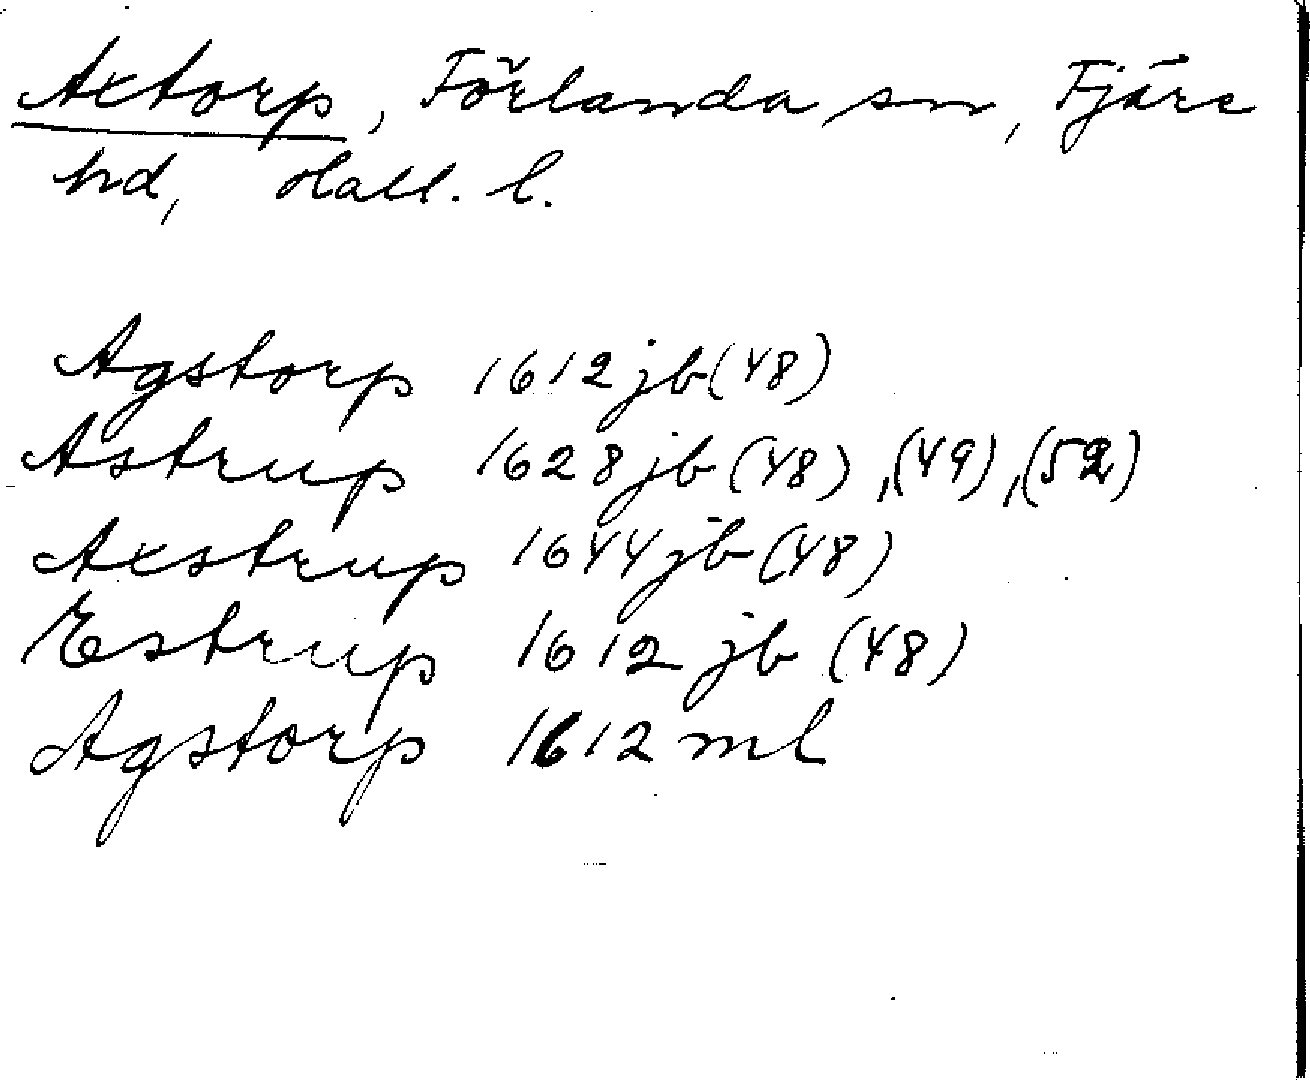 Axtorp, Förlanda sn, Fjäre
hd, Hall. l.
Agstorp 1612 jb (48)
Astrup 1628 jb (48), (49), (52)
Axstrup 1644 jb (48)
Estrup 1612 jb (48)
Agstorp 1612 ml